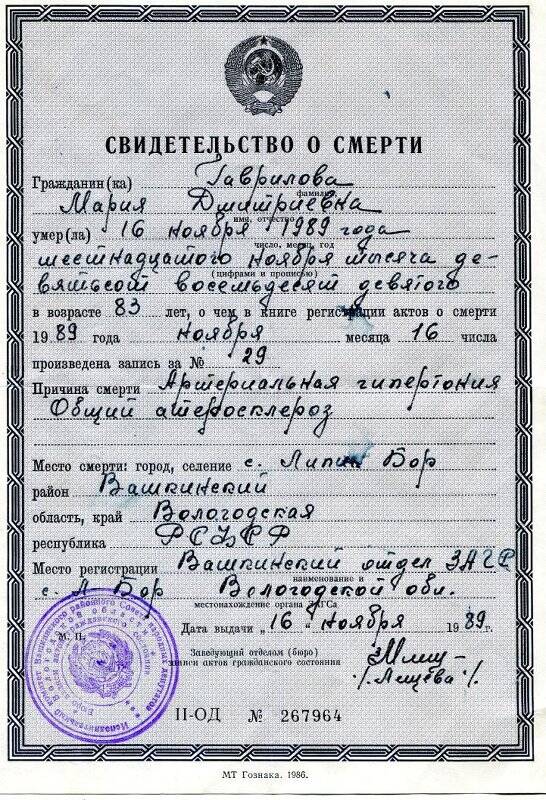 СВИДЕТЕЛЬСТВО О СМЕРТИ
Гражданин(ка) Гаврилова
фамилия
Мария Дмитриевна
имя, отчество
умер(ла) 16 ноября 1989 года
число, месяц, год
шестнадцатого ноября тысяча де-
(цифрами и прописью)
вятьсот восемьдесят девятого
в возрасте 83 лет, о чем в книге регистрации актов о смерти
1989 года ноября месяца 16 числа
произведена запись за № 29
Причина смерти Артериальная гипертония
Общий атеросклероз
Место смерти: город, селение с. Липин Бор
район Вашкинский
область, край Вологодская
республика РСФСР
Место регистрации Вашкинский отдел ЗАГС
наименование и
с. Л-Бор Вологодской обл.
местонахождение органа ЗАГСа
Дата выдачи „16" ноября 1989г.
М. П.
Заведующий отделом (бюро)
записи актов гражданского состояния
/Лещева/
II-ОД № 267964
МТ Гознака. 1986.